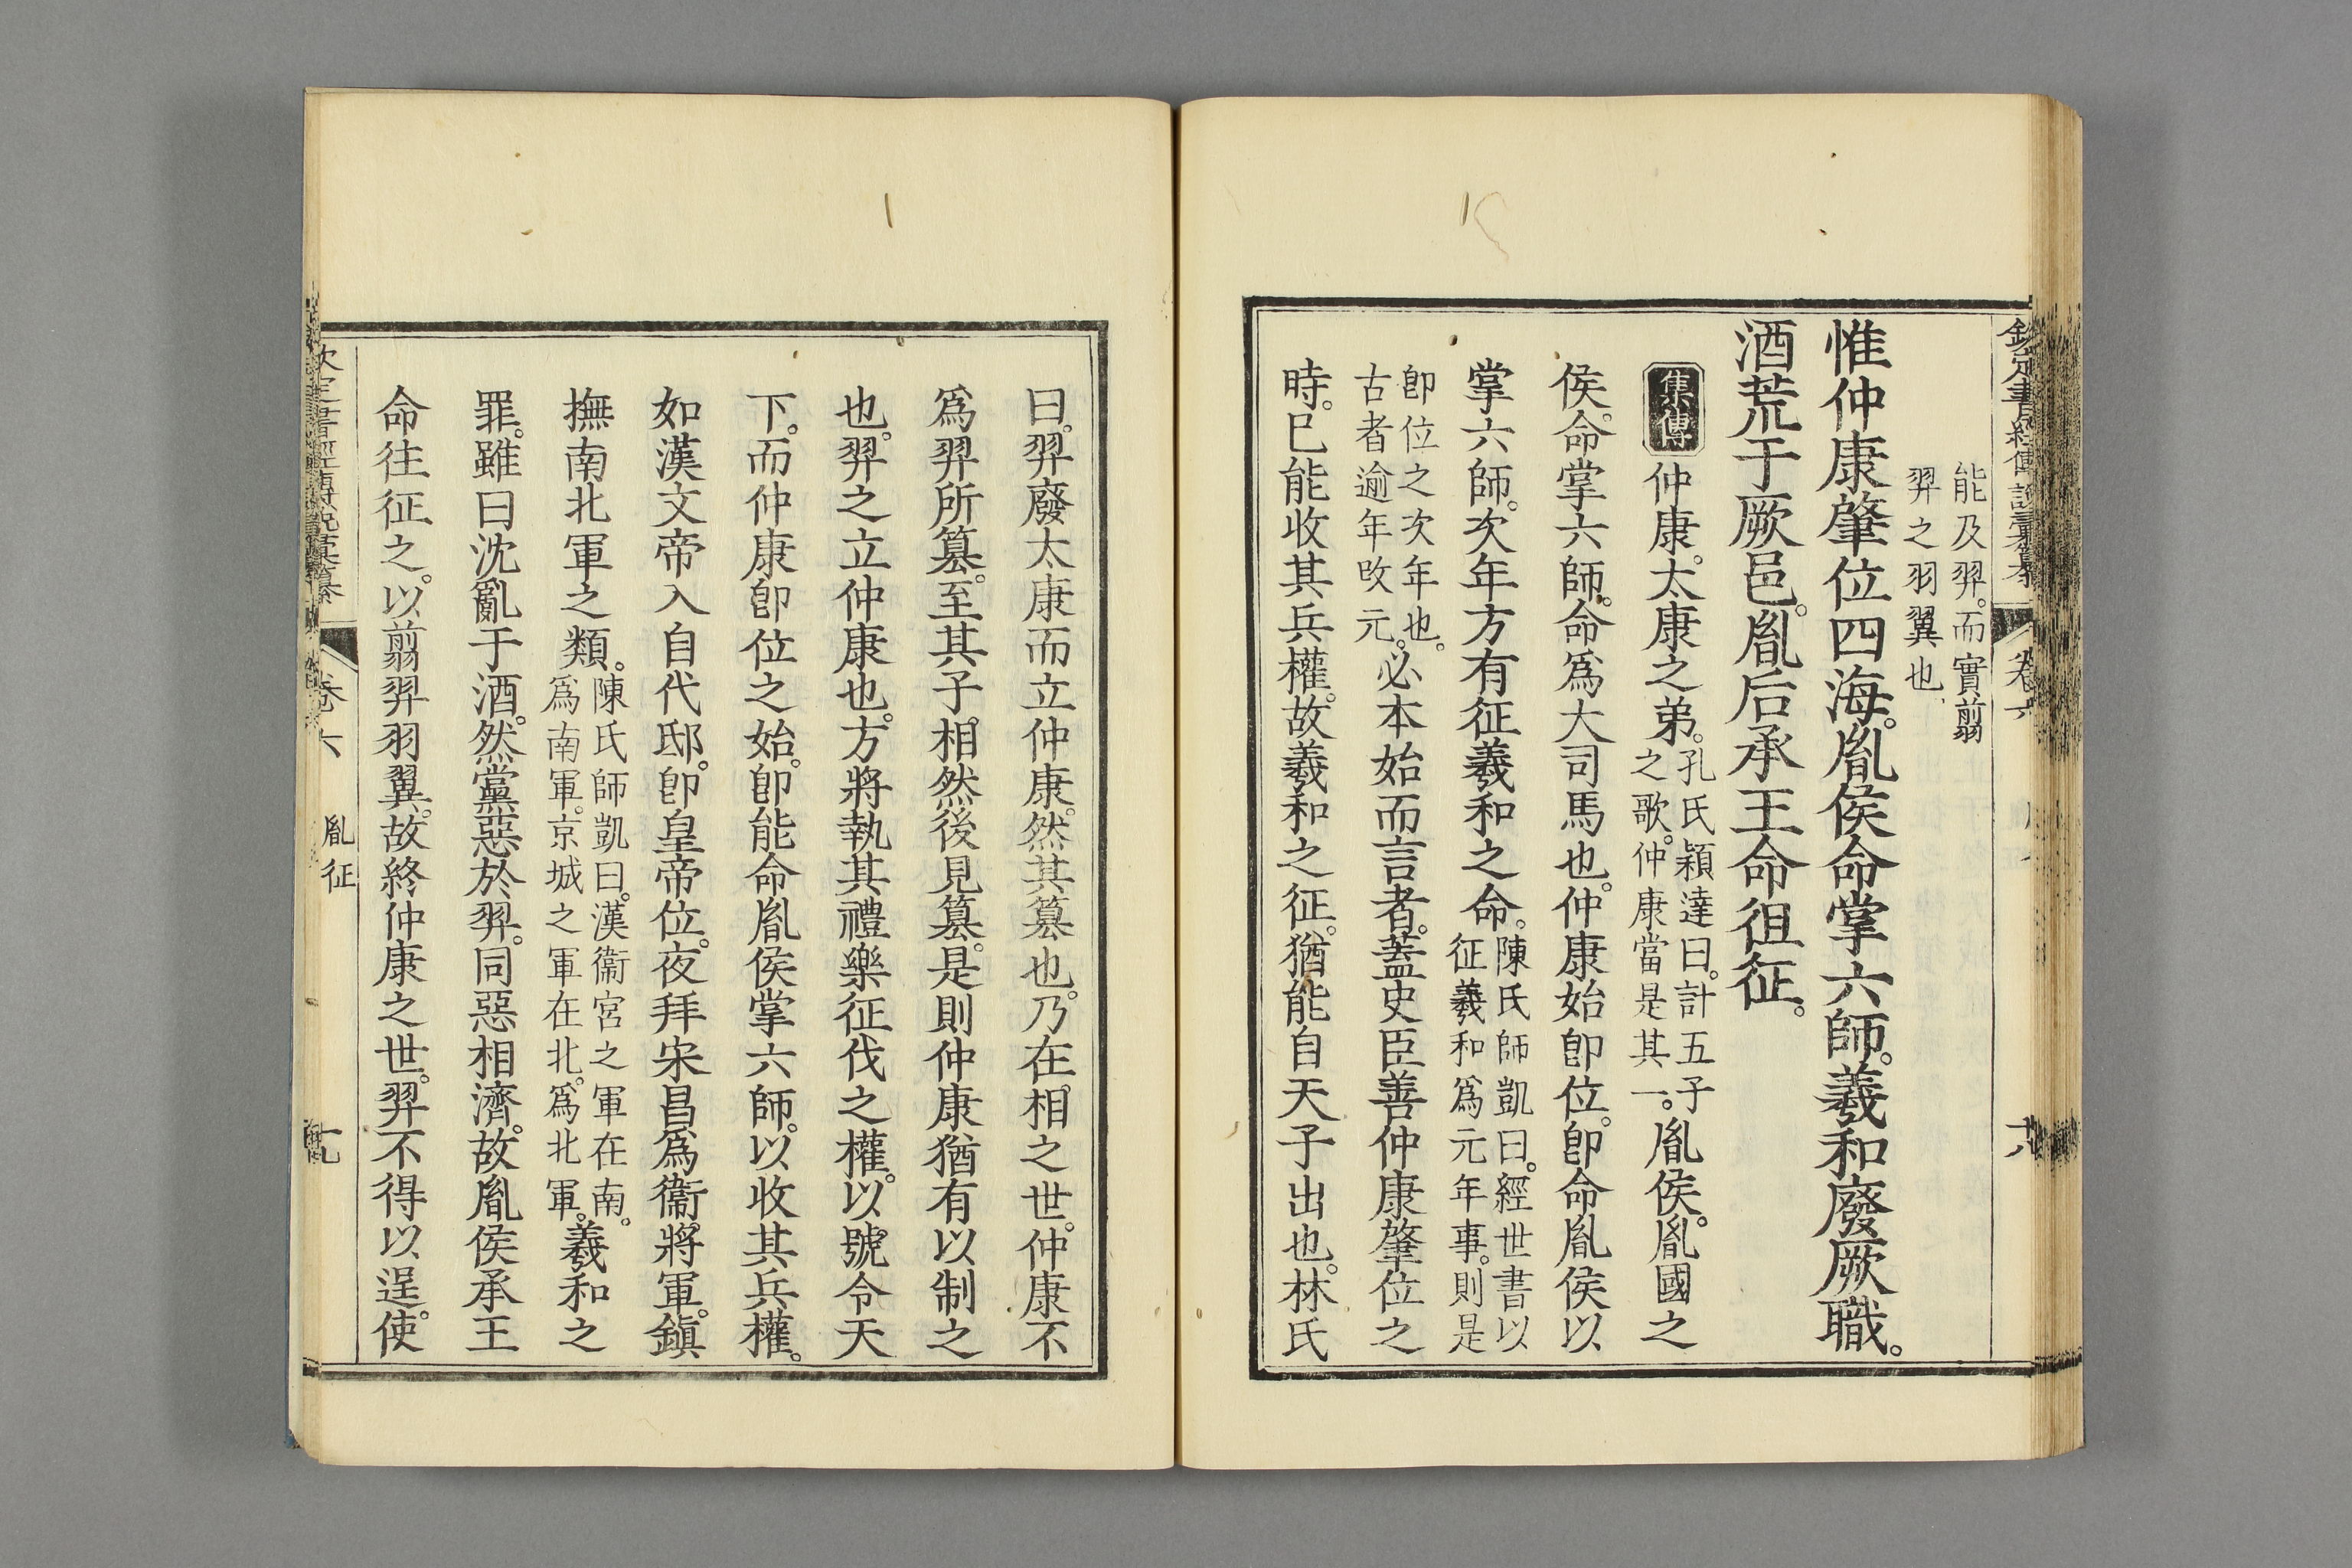 能及羿。而實翦
羿之羽翼也。
惟仲康肇位四海。胤侯命掌六師。羲和廢厥職。
酒荒于厥邑。胤后承王命徂征。
集傳
仲康。太康之弟。
孔氏穎達曰。計五子
之歌。仲康當是其一。
胤侯。胤國之
侯。命掌六師。命爲大司馬也。仲康始卽位。卽命胤侯以
掌六師。次年方有征羲和之命。
陳氏師凱曰。經世書以
征羲和爲元年事。則是
卽位之次年也。
古者逾年改元。
必本始而言者。蓋史臣善仲康肇位之
時。已能收其兵權。故羲和之征。猶能自天子出也。林氏
卷六
曰。羿廢太康而立仲康。然其簒也。乃在相之世。仲康不
爲羿所簒。至其子相。然後見簒。是則仲康猶有以制之
也。羿之立仲康也。方將執其禮樂征伐之權。以號令天
下。而仲康卽位之始。卽能命胤侯掌六師。以收其兵權。
如漢文帝入自代邸。卽皇帝位。夜拜宋昌爲衞將軍。鎭
撫南北軍之類。
陳氏師凱曰。漢衞宮之軍在南。
爲南軍。京城之軍在北。爲北軍。
羲和之
罪。雖曰沈亂于酒。然黨惡於羿。同惡相濟。故胤侯承王
命往征之。以翦羿羽翼。故終仲康之世。羿不得以逞。使
卷六
胤征